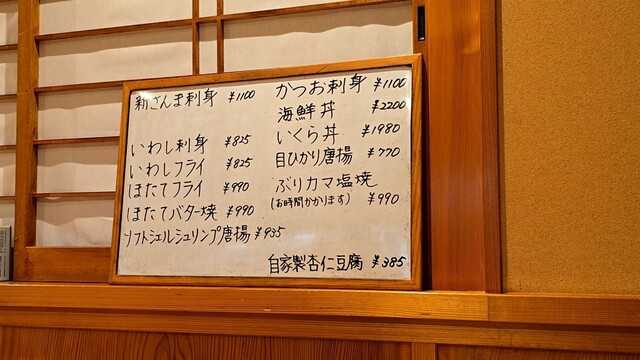 新さんま刺身 ¥1100
いわし刺身 ¥825
いわしフライ ¥825
ほたてフライ ¥990
ほたてバター焼 ¥990
ソフトシェルシュリンプ唐揚 ¥935
かつお刺身 ¥1100
海鮮丼 ¥2200
いくら丼 ¥1980
目ひかり唐揚 ¥770
ぶりカマ塩焼
(お時間かかります) ¥990
自家製杏仁豆腐 ¥385